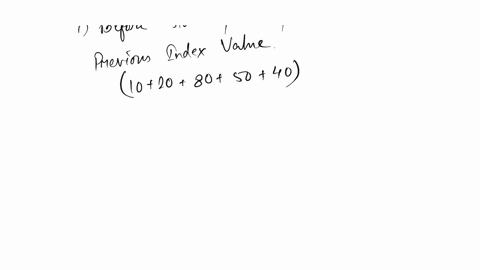 1) Before
Previous Index Value.
(10+20+80+50+40)